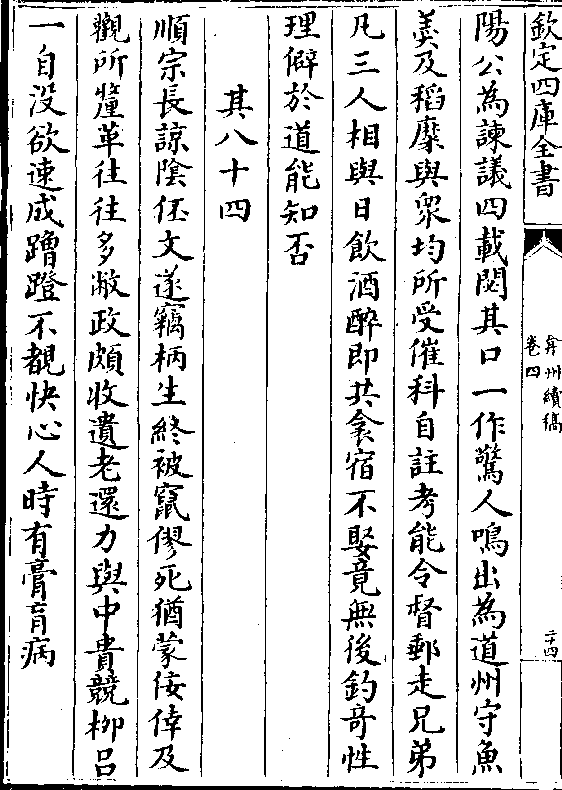 欽定四庫全書
弇州續稿
卷四
二十四
陽公為諫議四載閟其口一作驚人鳴出為道州守魚
羮及稻糜與衆均所受催科自註考能令督郵走兄弟
凡三人相與日飲酒醉即共衾宿不娶竟無後釣奇性
理僻於道能知否
其八十四
順宗長諒陰伾文遂竊柄生終被竄僇死猶蒙佞倖及
觀所釐革往往多敝政頗收遺老還力與中貴競柳呂
一自没欲速成蹭蹬不覩快心人時有膏肓病